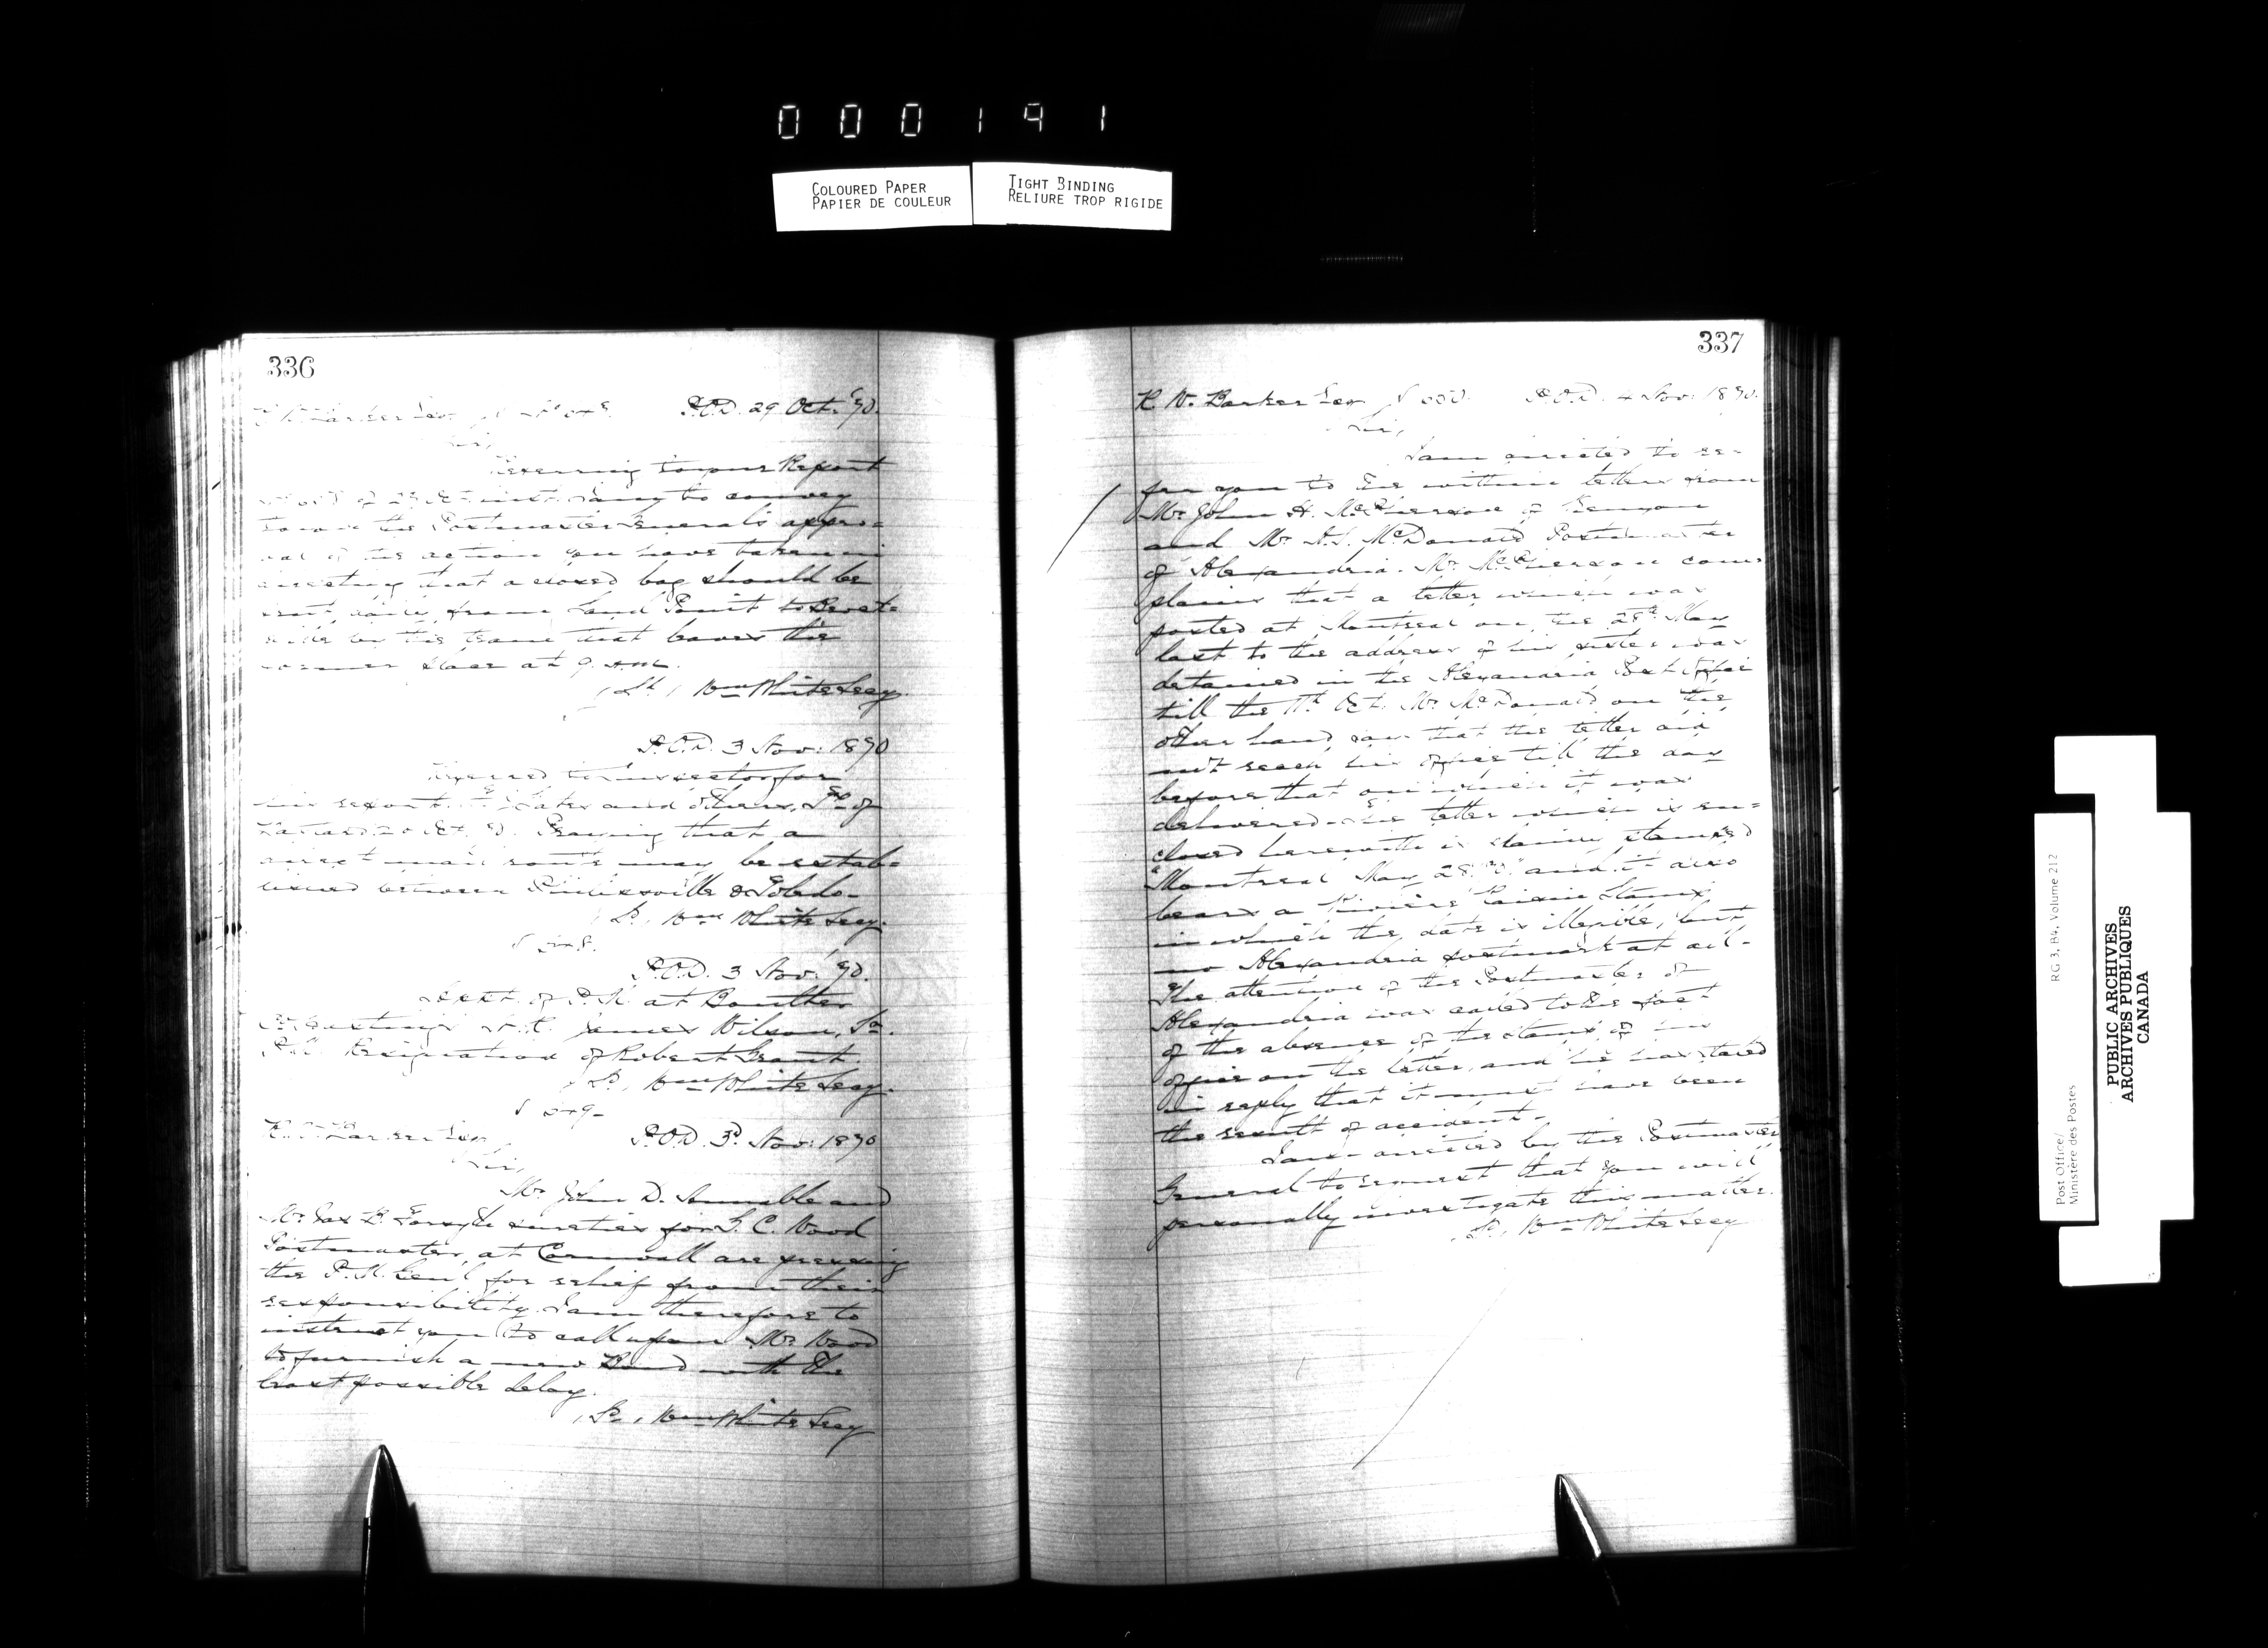 000191
COLOURED PAPER
PAPIER DE COULEUR
TIGHT BINDING
RELIURE TROP RIGIDE
336
P.O.D. 29 Oct. '90.
Sir,
Referring to your Report
of 28 Oct inst. I am to convey
to you the Postmaster General's appro=
val of the action you have taken in
directing that a closed bag should be
sent daily from Sand Point to
by the train that leaves the
former place at 9. AM.
Wm White Secy.
P.O.D. 3 Nov: 1890
Referred to Inspector for
his report. and others, of
Praying that a
direct mail route may be estab=
lished between Philipsville & Toledo.
Wm White Secy.
P.O.D. 3 Nov. '90.
of P.M. at Boulter
Hastings James Wilson,
Resignation of Robert Grant.
Wm White Secy.
R.W. Barker Esq.
P.O.D. 3d Nov: 1890
Sir,
Mr John D. and
Mr Jas B. Forsyth sureties for G. C. Wood
Postmaster, at Cornwall are pressing
the P.M. Gen'l for relief from their
responsibility. I am therefore to
instruct you to call upon Mr Wood
to furnish a new Bond with the
least possible delay.
Wm White Secy
337
R. W. Barker Esq. P.O.D. 4 Nov: 1890.
Sir,
I am directed to re-
fer you to the within letters from
Mr John H. McPherson of Kenyon
and Mr McDonald Postmaster
of Alexandria. Mr McPherson com-
plains that a letter which was
posted at Montreal on the 28th May
last to the address of his sister was
detained in the Alexandria Post Office
till the 11th Oct. Mr McDonald on the
other hand, says that the letter did
not reach his office till the day
before that on which it was
delivered. The letter which is en=
closed herewith is plainly stamped
"Montreal May 28. '90." and it also
bears a Rivière Raisin Stamp
in which the date is illegible, but
no Alexandria postmark at all.
The attention of the Postmaster of
Alexandria was called to the fact
of the absence of the stamp of his
office on the letter, and he has stated
in reply that it must have been
the result of accident.
I am directed by the Postmaster
General to request that you will
personally investigate this matter.
Wm White Secy
Post Office/
Ministère des Postes
RG 3, B4, Volume 212
PUBLIC ARCHIVES
ARCHIVES PUBLIQUES
CANADA